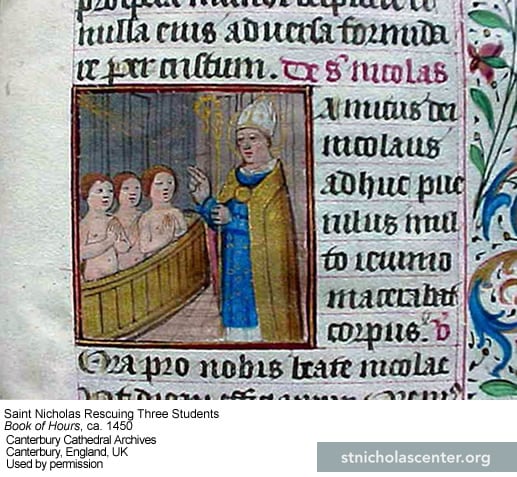 nulla eius aduersa formida
re per cristum. De sͭ nicolas
Amicus dei
nicolaus
adhuc pue
rulus mul
to ieiunio
macerabat
corpus. V
Ora pro nobis beate nicolae
Saint Nicholas Rescuing Three Students
Book of Hours, ca. 1450
Canterbury Cathedral Archives
Canterbury, England, UK
Used by permission
stnicholascenter.org